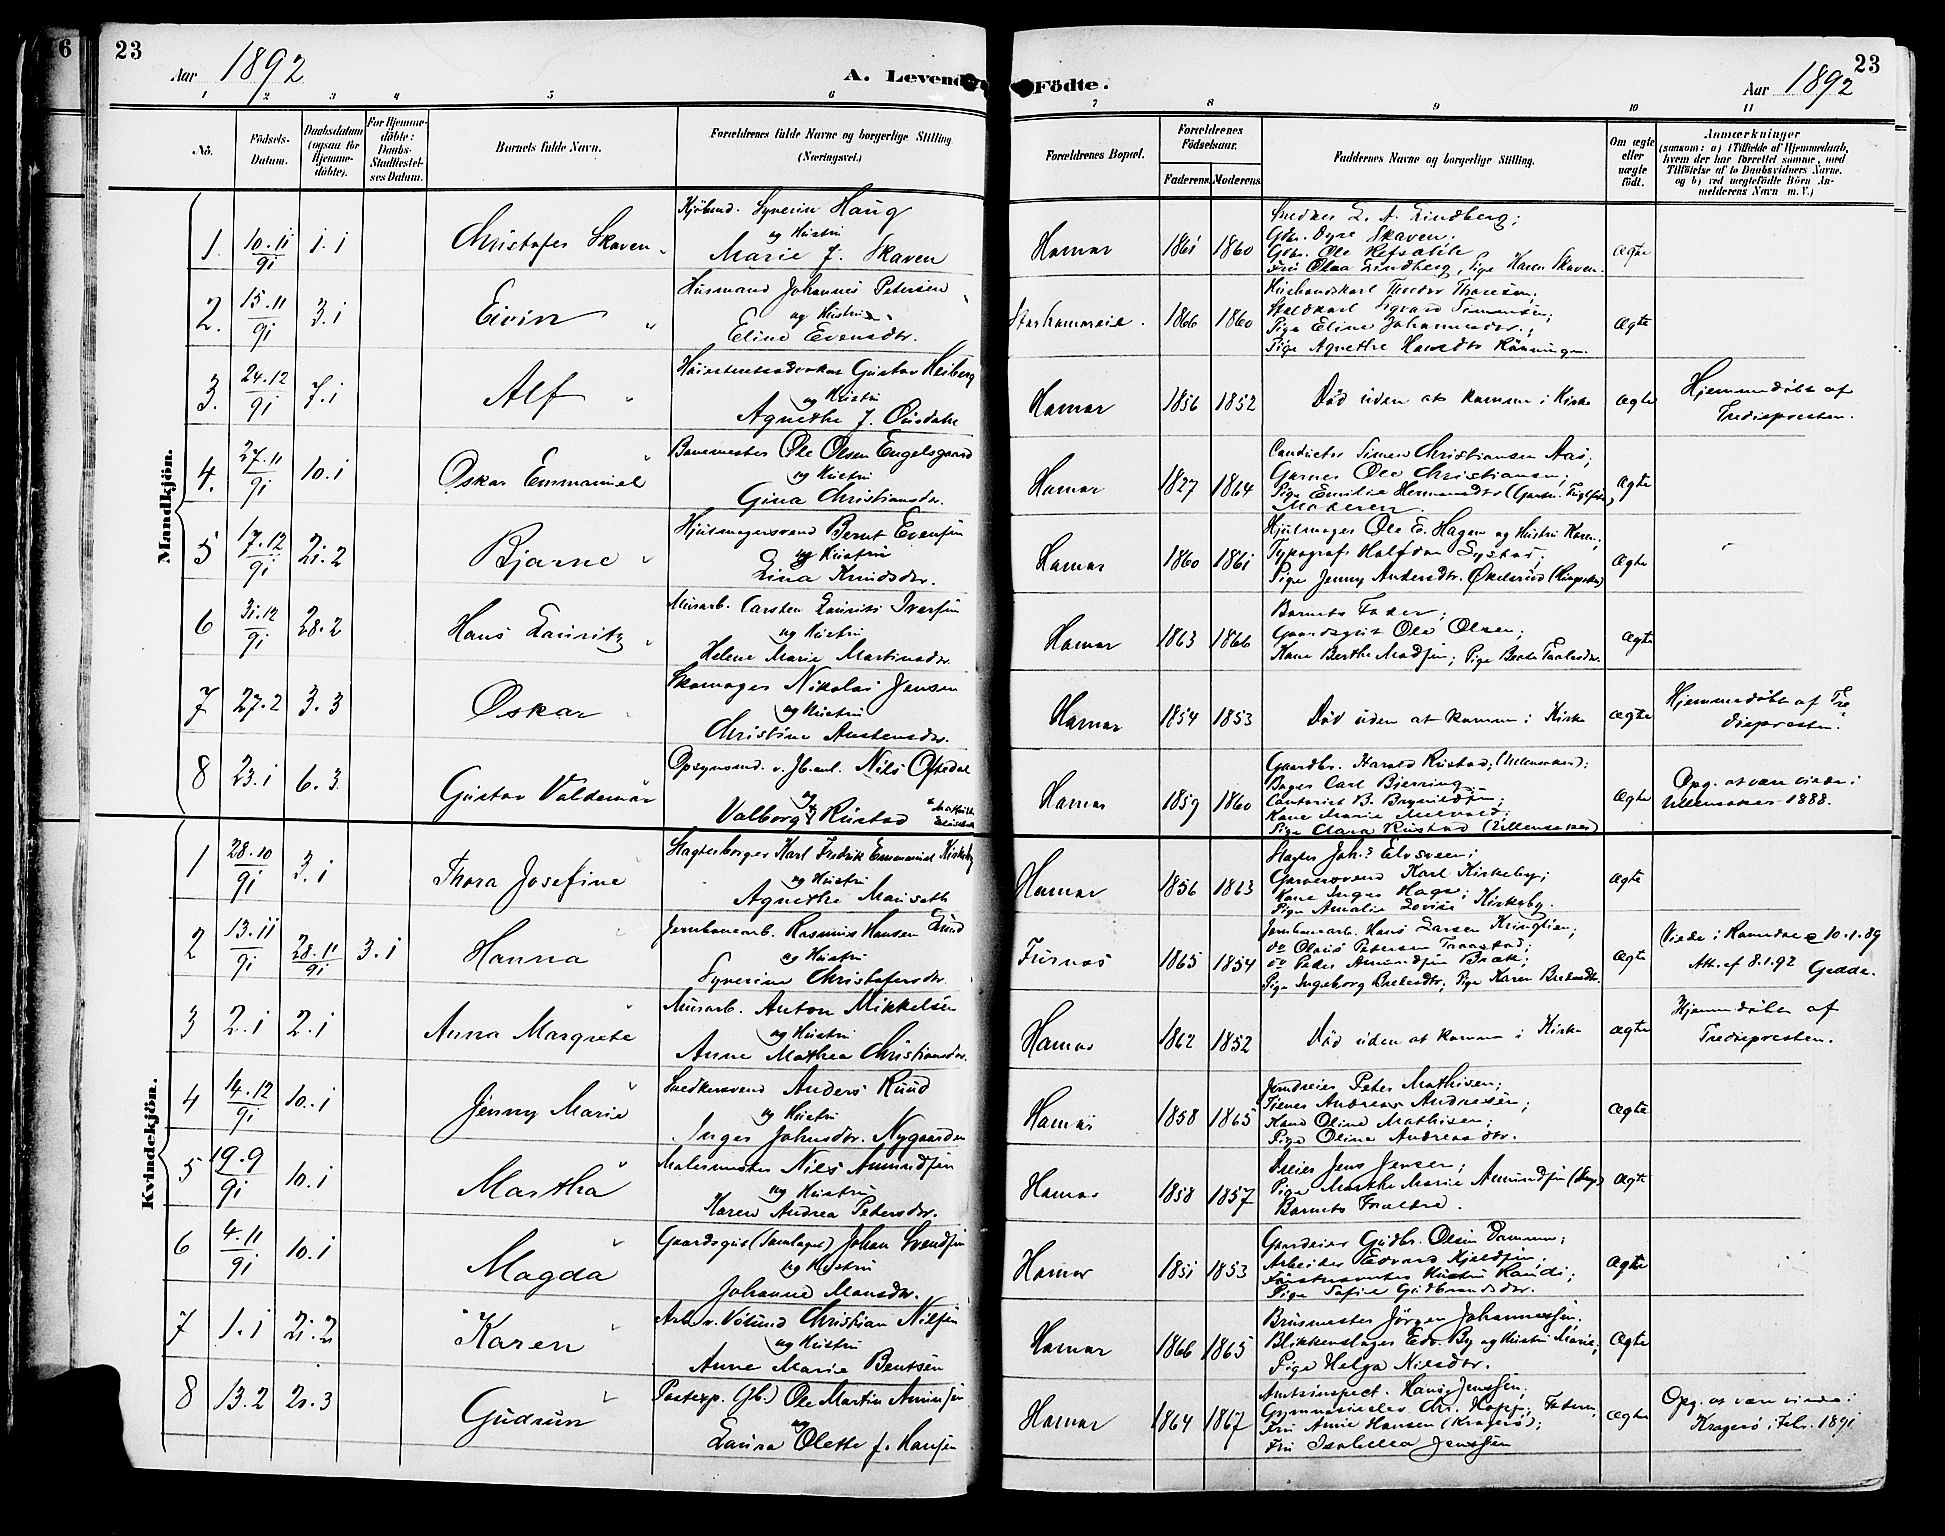 6
23
Aar 1892
A. Levende
Födte.
Aar 1892
23
1 2 3 4 5 6
7 8 9 10 11
No.
Födsels-Datum.
Daabsdatum (ogsaa for Hjemme-döbte).
For Hjemme-döbte: Daabs-Stadfæstel-ses Datum.
Barnets fulde Navn.
Forældrenes fulde Navne og borgerlige Stilling (Næringsvei.)
Forældrenes Bopæl.
Forældrenes Födselsaar.
Faderens. Moderens.
Faddernes Navne og borgerlige Stilling.
Om ægte eller uægte födt.
Anmærkninger
(saasom: a) i Tilfælde af Hjemmedaab, hvem der har forrettet samme, med Tilföielse af to Daabsvidners Navne, og b) ved uægtefödte Börn An-melderens Navn m. V.)
Mandkjön.
1. 10.11 91 1.1 Christofer Skaven
Kjöbmd. Syverin Haug
og Hustru
Marie J. Skaven
Hamar 1861 1860
Snedker L. A. Lindberg;
Gbr. Dyre Skaven.
Gbr. Ole Hefsalık
Fru Olea Lindberg, Pige Karen Skaven.
Ægte
2. 15.11 91 3.1 Eivin
Husmand Johannes Petersen
og Hustru
Eline Evensdtr.
Storhamareie. 1866 1860
Husbondskarl Theodor Thoresen;
Staldkarl Sigvard Simensen;
Pige Eline Johannesdtr.;
Pige Agnethe Hansdtr Rönningen.
Ægte
3. 24.12 91 7.1 Alf
Höiesteretsadvokat Gustav Heiberg
og Hustru
Agnethe J. Ousdahl
Hamar 1856 1852
Död uden at komme i Kirke
Ægte
Hjemmedöbt af
Trediepresten.
4. 27.11 91 10.1 Oskar Emmanuel
Banemester Ole Olsen Engelsgaard
og Hustru
Gina Christiansdtr.
Hamar 1827 1864
Conductör Simen Christiansen Aas;
Garver Ole Christiansen;
Pige Emilie Hermansdtr
Moderen.
Ægte
5 17.12 91 21.2 Bjarne
Hjulmagersvend Bernt Evensen
og Hustru
Lina Knudsdtr.
Hamar 1860 1861
Hjulmager Ole E. Hagen og Hustru Karen;
Typograf Halfdan Systad;
Pige Jenny Andersdtr. Økelsrud (Ringsaker)
Ægte
6 31.12 91 28.2 Hans Lauritz
Murarb. Carsten Laurits Iversen
og Hustru
Helene Marie Martinsdtr.
Hamar 1863 1866
Barnets Fader;
Gaardsgut Ole Olsen;
Kone Berthe Madsen; Pige Berte Paalsdtr.
Ægte
7 27.2 3.3 Oskar
Skomager Nikolai Jensen
og Hustru
Christine Austensdtr.
Hamar 1854 1853
Död uden at komme i Kirke
Ægte
Hjemmedöbt af Tre
diepresten.
8 23.1 6.3 Gustav Valdemar
Opsynsmd. v. Jb.anl. Nils Oftedal
og
Valborg Mathilde Elisabeth Rustad
Hamar 1859 1860
Gaardbr. Harald Rustad; (Ullensaker);
Bager Carl Bjerring;
Contorist B. Brynildsen;
Kone Marie Melvold;
Pige Clara Rustad (Ullensaker)
Ægte
Opg. at være viede i
Ullensaker 1888.
Kvindekjön.
1 28.10 91 3.1 Thora Josefine
Slagterborger Karl Fredrik Emmanuel Kirkeby
og Hustru
Agnethe Mauseth
Hamar 1856 1863
Slagter Johs. Elvsveen;
Garversvend Karl Kirkeby;
Kone Inger Hage;
Pige Amalie Lovise Kirkeby.
Ægte
2 13.11 91 28.11 91 3.1 Hanna
Jernbanearb. Rasmus Hansen Lund
og Hustru
Syverine Christofersdtr.
Furnæs 1865 1854
Jernbanearb. Hans Larsen Kringlien;
do Olaus Petersen Traastad;
do Peder Amundsen Bråk;
Pige Ingeborg
Ægte
Viede i Romedal 10.1.89
Att. af 8.1.92 Gedde.
3 2.1 2.1 Anna Margrete
Murarb. Anton Mikkelsen
og Hustru
Anne Mathea Christiansdtr.
Hamar 1862 1852
Död uden at komme i Kirke
Ægte
Hjemmedöbt af
Trediepresten.
4 14.12 91 10.1 Jenny Marie
Snedkersvend Anders Ruud
og Hustru
Inger Johnsdtr. Nygaarden
Hamar 1858 1865
Jerndreier Peter Mathisen;
Tjener Andreas Andresen;
Kone Oline Mathisen;
Pige Oline Andreasdtr.
Ægte
5 19.9 91 10.1 Martha
Malermester Nils Amundsen
og Hustru
Karen Andrea Petersdtr.
Hamar 1858 1857
Dreier Jens Jensen;
Pige Marthe Marie Amundsen
Barnets Forældre.
Ægte
6 4.11 91 10.1 Magda
Gaardsgut (Samlaget) Johan Svendsen
og Hustru
Johanne Monsdtr.
Hamar 1851 1853
Gaardeier Gudbr. Olsen Dammen;
Arbeider Edvard Kjeldsen;
Hustru Randi;
Pige Sofie Gudbrandsdtr.
Ægte
7 1.1 21.2 Karen
Arb. v. Völund Christian Nilsen
og Hustru
Anne Marie Bentsen
Hamar 1866 1865
Brusmester Jörgen Johannessen;
Blikkenslager Edv. By og Hustru Marie;
Pige Helga Nilsdtr.
Ægte
8 13.2 20.3 Gudrun
Postexp. (Jb.) Ole Martin Amundsen
og
Laura Olette f. Hansen
Hamar 1864 1867
Amtsinspect. Hans Jenssen;
Gymnasieelev Chr. Hopp; Faderen,
Fru Anne Hansen (Kragerö);
Fru Isabella Jenssen
Ægte
Opg. at være viede i
Kragerö i Febr. 1891